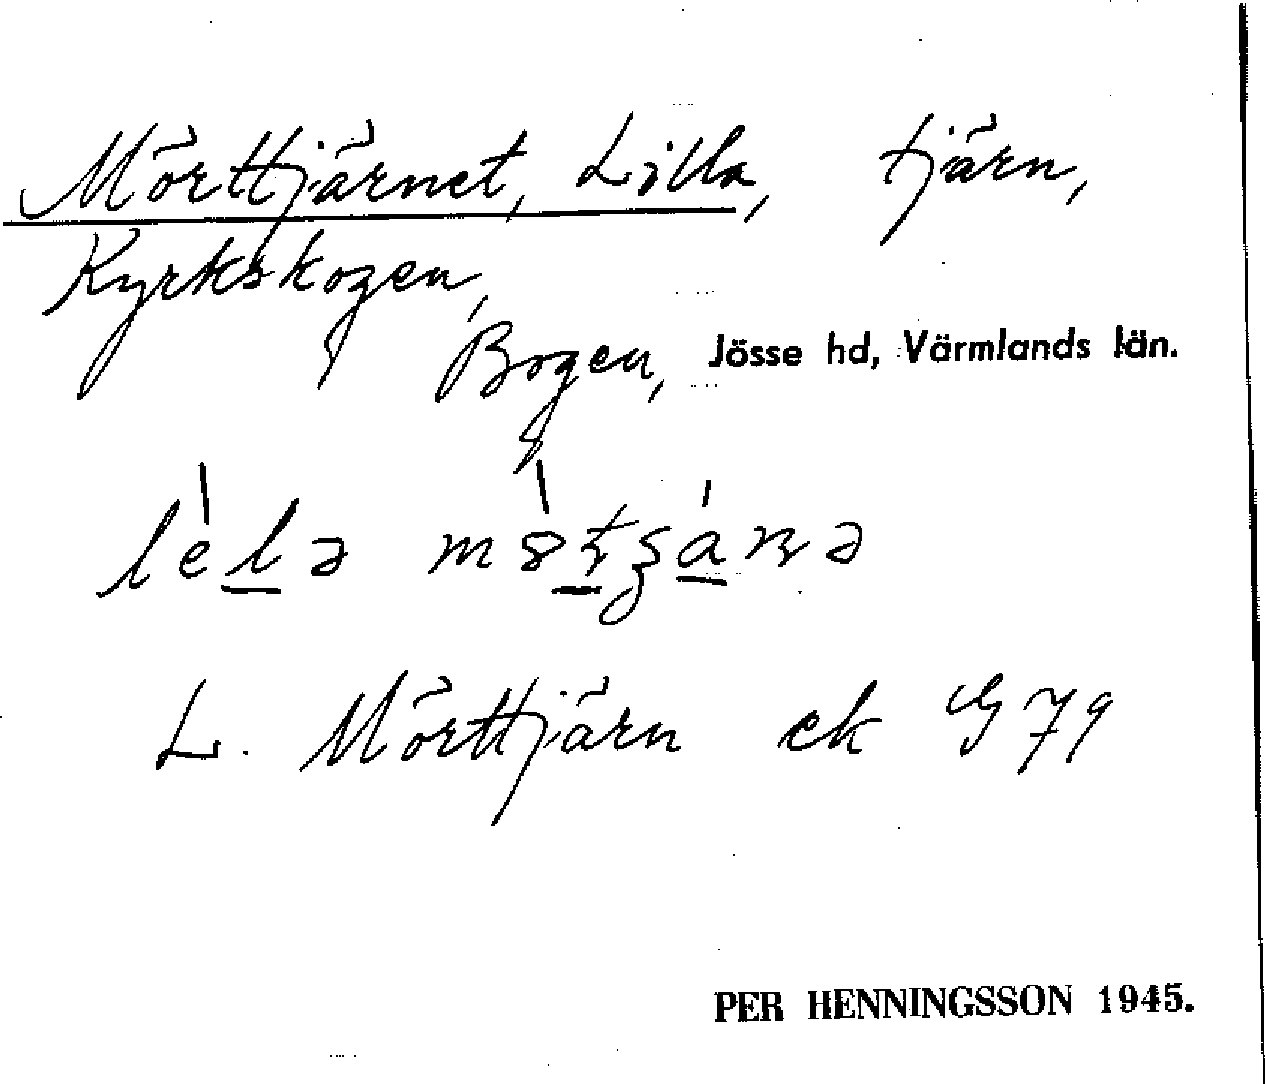 Mörttjärnet, Lilla, tjärn,
Kyrkskogen,
Bogen, Jösse hd, Värmlands län.
L. Mörttjärn ek G 79
PER HENNINGSSON 1945.